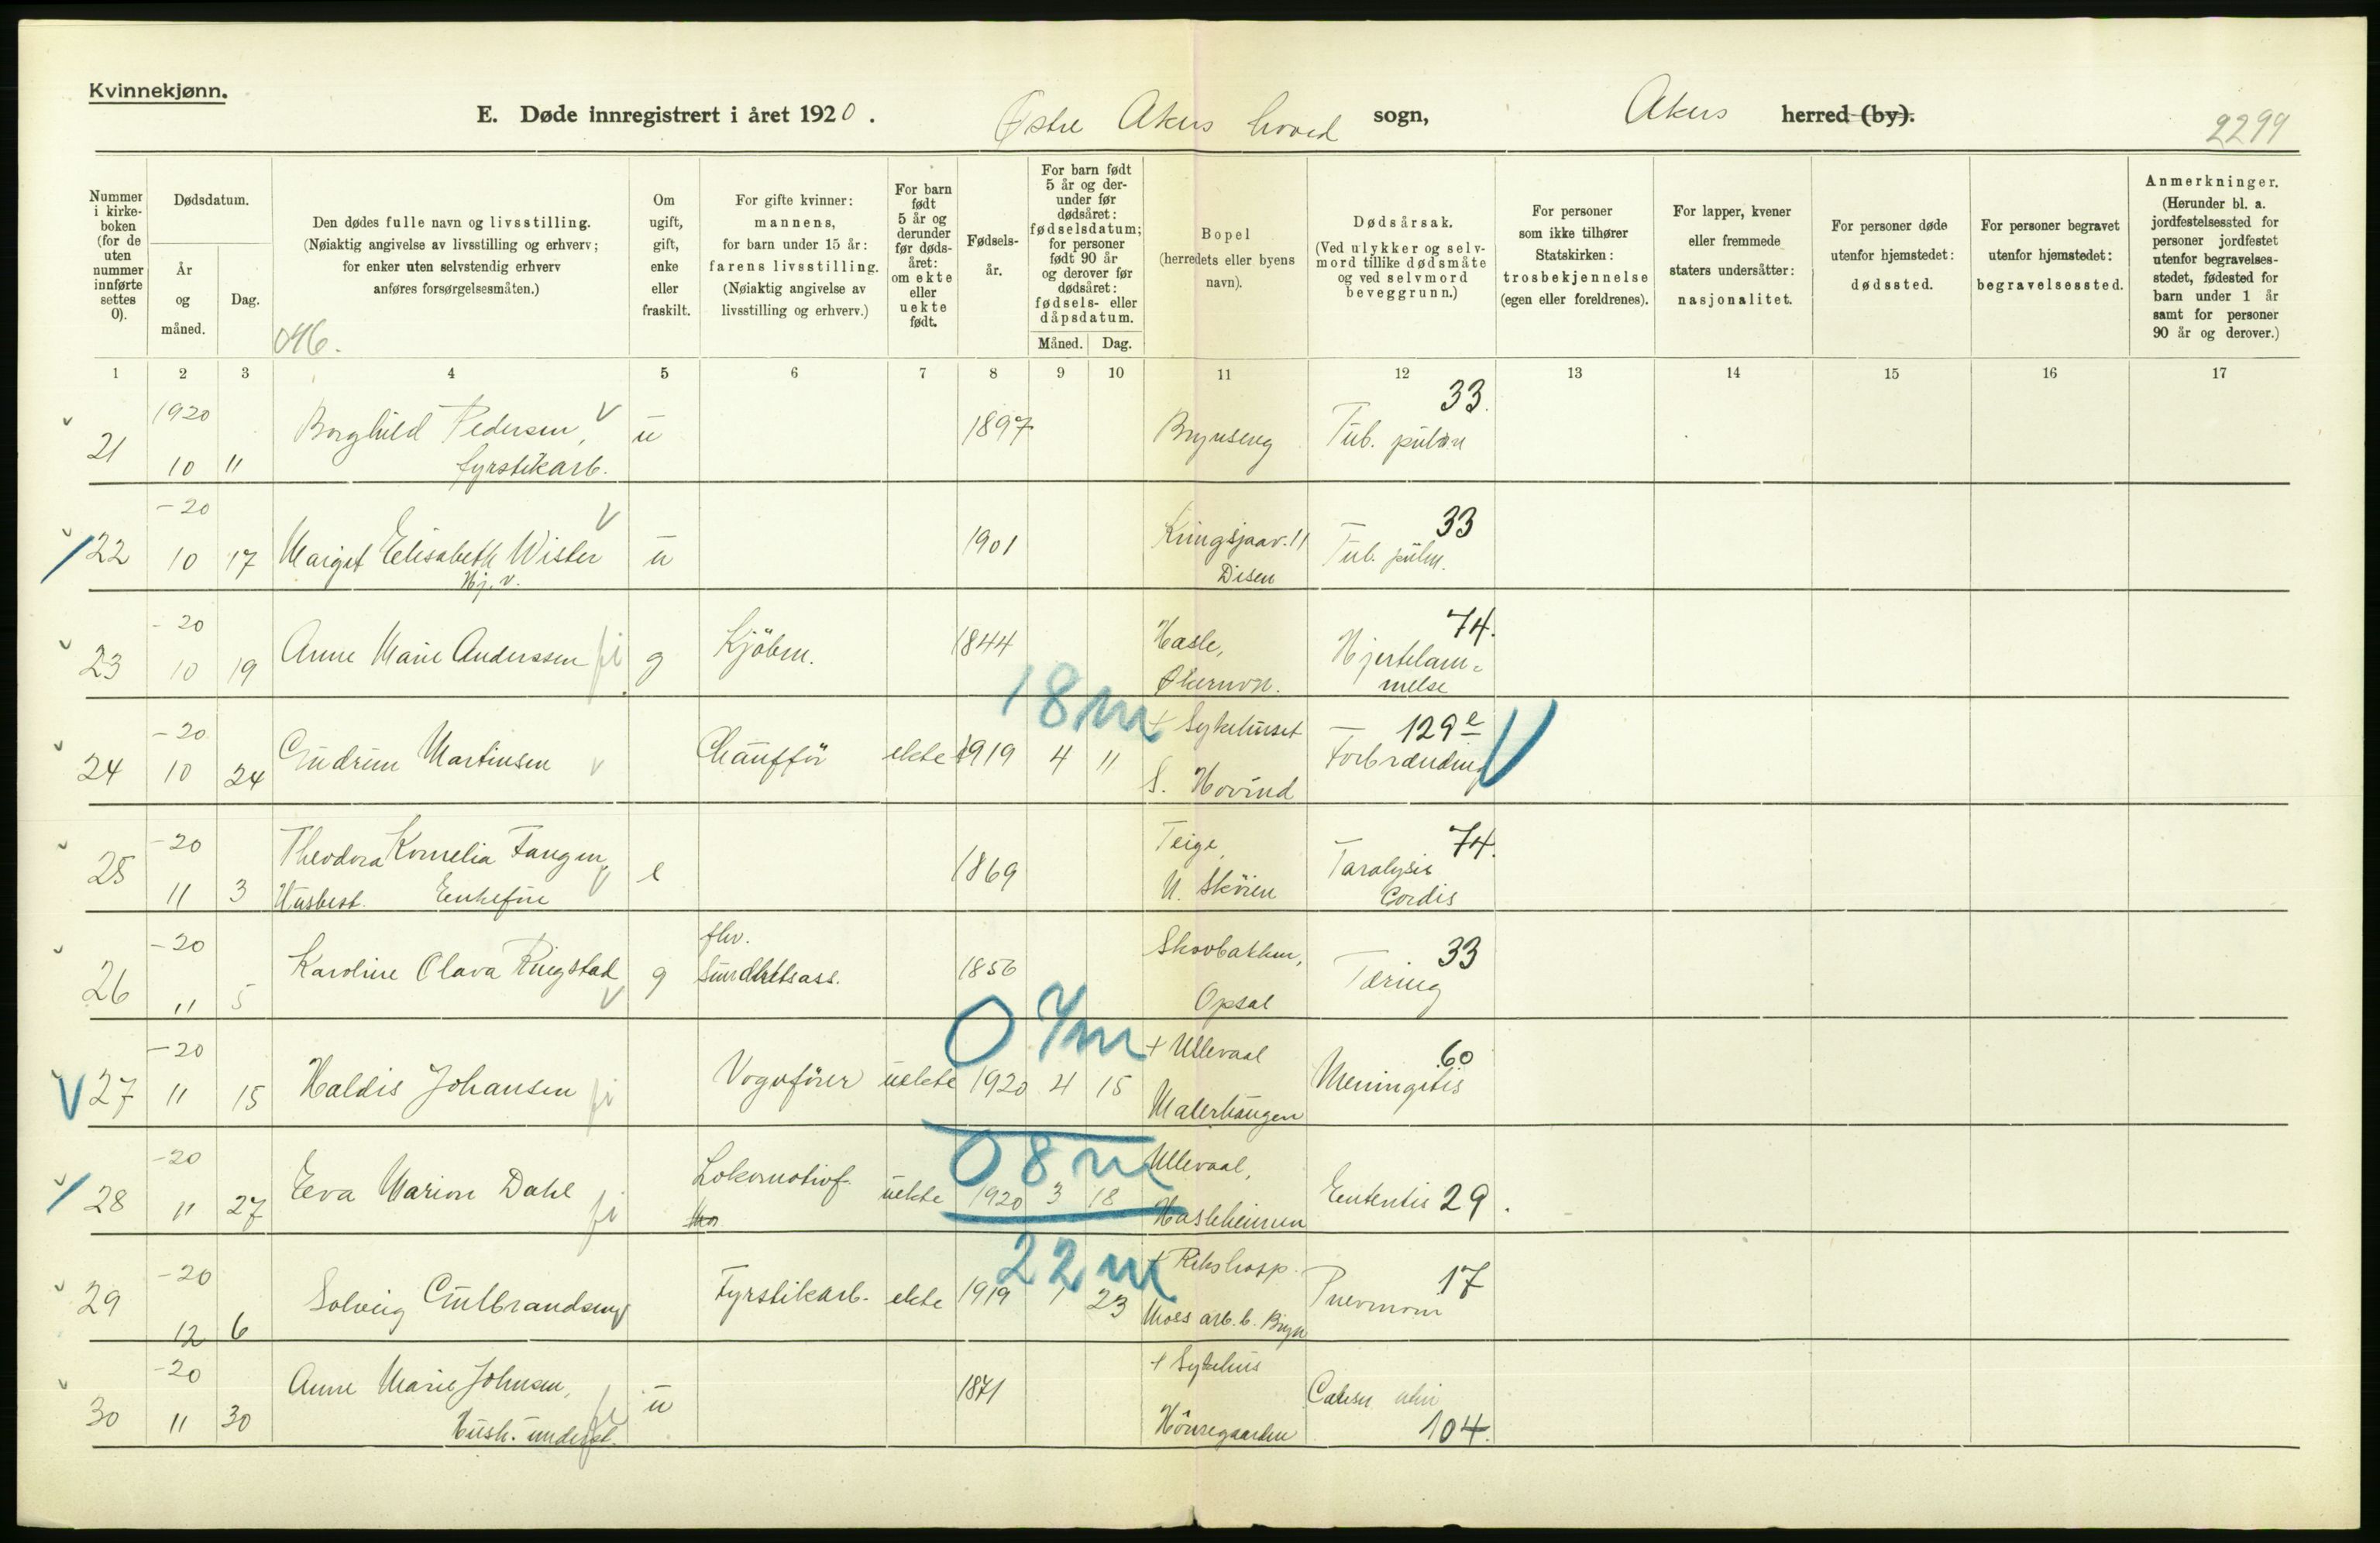 Kvinnekjønn.
E. Døde innregistrert i året 1920. Østre Akers hoved sogn, Akers herred (by).
2299
Nummer i kirkeboken (for de uten nummer innførte settes 0).
Dødsdatum.
År og måned.
Dag.
Den dødes fulle navn og livsstilling.
(Nøiaktig angivelse av livsstilling og erhverv;
for enker uten selvstendig erhverv
anføres forsørgelsesmåten.)
Om ugift, gift, enke eller fraskilt.
For gifte kvinner: mannens,
for barn under 15 år:
farens livsstilling.
(Nøiaktig angivelse av
livsstilling og erhverv.)
For barn født 5 år og derunder før dødsåret: om ekte eller uekte født.
Fødselsår.
For barn født 5 år og derunder før dødsåret: fødselsdatum; for personer født 90 år og derover før dødsåret: fødsels- eller dåpsdatum.
Måned. Dag.
Bopel
(herredets eller byens navn).
Dødsårsak.
(Ved ulykker og selvmord tillike dødsmåte og ved selvmord beveggrunn.)
For personer som ikke tilhører Statskirken: trosbekjennelse (egen eller foreldrenes).
For lapper, kvener eller fremmede staters undersåtter: nasjonalitet.
For personer døde utenfor hjemstedet: dødssted.
For personer begravet utenfor hjemstedet: begravelsessted.
Anmerkninger.
(Herunder bl. a. jordfestelsessted for personer jordfestet utenfor begravelsesstedet, fødested for barn under 1 år samt for personer 90 år og derover.)
1 2 3 4 5 6 7 8 9 10 11 12 13 14 15 16 17
21 1920 10 11 Borghild Pedersen, fyrstikarb. u 1897 Brynseng Tub. pulm 33.
22 -20 10 17 Margit Elisabeth Wister Hj. v. u 1901 Kringsjaav. 11 Disen Tub. pulm. 33
23 -20 10 19 Anne Marie Anderssen g Kjöbm. 1844 Hasle, Økernvn. Hjertelammelse 74.
18 m
24 -20 10 24 Gudrun Martinsen Chaufför ekte 1919 4 11 + Sykehuset S. Hovind Forbrænding 129 e
25 -20 11 3 Theodora Kornelia Fangen Husbest. Enkefue e 1869 Teige, N. Sköien Paralysis Cordis 74.
26 -20 11 5 Karoline Olava Ringstad g fhv. Sundhetsass. 1856 Skovbakken, Opsal Tæring 33
0 7 m
27 -20 11 15 Haldis Johansen Vognfören uekte 1920 4 15 + Ullevaal Malerhaugen Meningitis 60
0 8 m
28 -20 11 27 Eva Marion Dahl Lokomotivf. uekte 1920 3 18 Ullevaal, Hasleheimen Enteritis 29.
22 m
29 -20 12 6 Solveig Gulbrandsen Fyrstikarb. ekte 1919 1 23 + Rikshosp. Moss arb. b. Bryn Pneumoni 17
30 -20 11 30 Anne Marie Johnsen, Hush. underst. u 1871 + Sykehus Hönsegaarden 104.